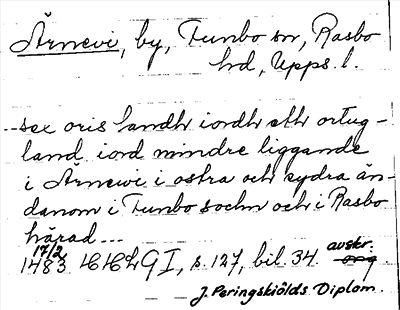 Ärnevi, by, Funbo sn, Rasbo
hd, Upps. l.
...sex öris landh iordh ett ortug-
land iord mindre liggande
i Ärnewi i østra och sydra än-
danom i Funbo sochn och i Rasbo
härad...
17/2
1483 HHG I, s. 127, bil. 34. avskr.
orig.
J. Peringskiölds Diplom.